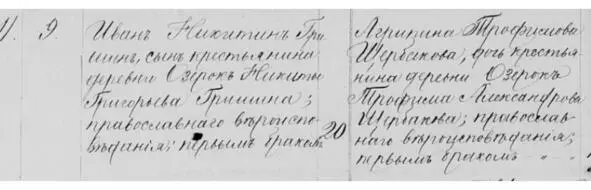 11. 9.
Иванъ Никитинъ Гри
шинъ, сынъ крестьянина
деревни Озёрокъ Никиты
Григорьева Гришина;
православнаго вѣроиспо
вѣданія; первымъ бракомъ
20
Агрипина Трофимова
Щербакова, дочь крестья
нина деревни Озерокъ
Трофима Александрова
Щербакова; православ
наго вѣроисповѣданія;
первымъ бракомъ